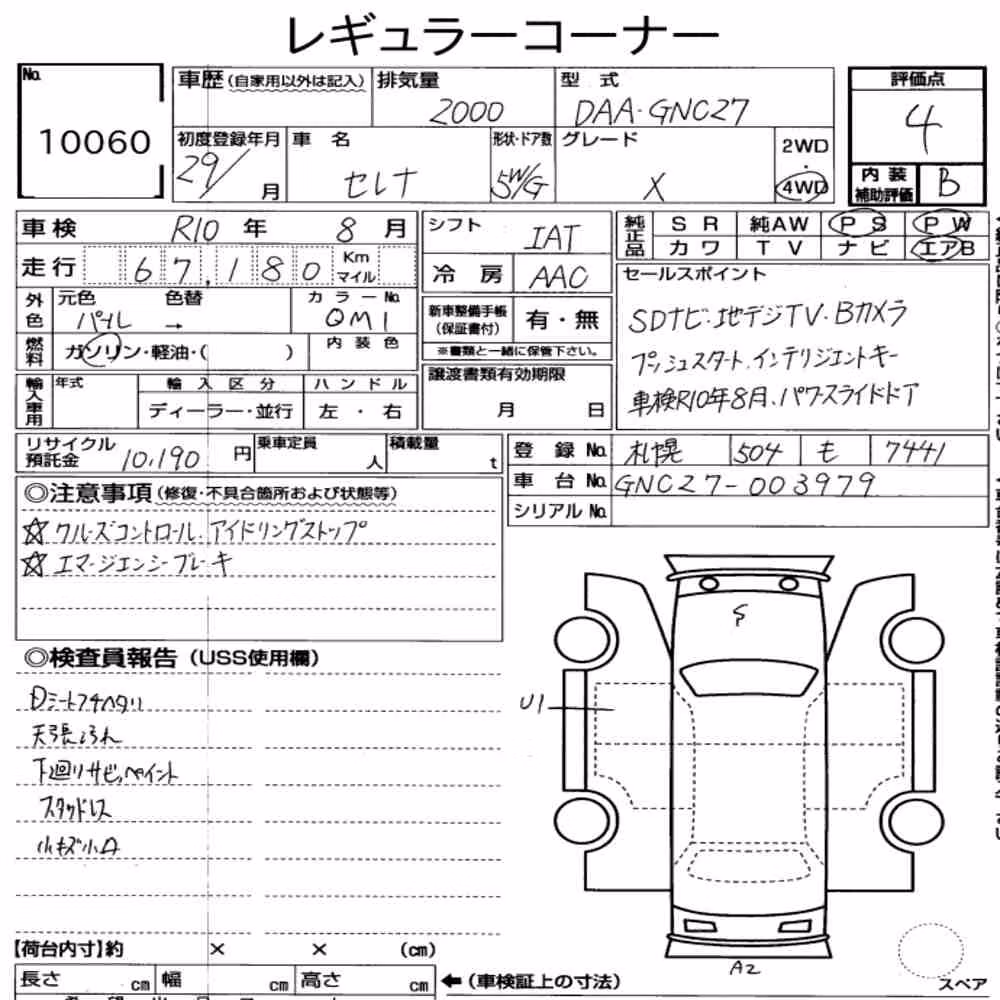 レギュラーコーナー
No.
10060
車歴(自家用以外は記入)
排気量
2000
型 式
DAA-GNC27
評価点
4
初度登録年月
29/
月
車 名
セレナ
形状・ドア数
5W/G
グレード
X
2WD
・
4WD
内 装
補助評価
B
車検 R10 年 8 月
走行 67,180 Km マイル
外色
元色 色替
パール →
カラーNo.
QM1
燃料
ガソリン・軽油・( )
内 装 色
輸入車用
年式
輸 入 区 分
ディーラー・並行
ハ ン ド ル
左 ・ 右
シフト
IAT
冷 房
AAC
新車整備手帳
(保証書付)
有・無
※書類と一緒に保管下さい。
譲渡書類有効期限
月 日
純正品
SR 純AW PS PW
カワ TV ナビ エアB
セールスポイント
SDナビ・地デジTV・Bカメラ
プッシュスタート.インテリジェントキー
車検R10年8月、パワースライドドア
リサイクル
預託金
10,190 円
乗車定員
人
積載量
t
登 録 No. 札幌 504 も 7441
車 台 No. GNC27-003979
シリアル No.
◎注意事項(修復・不具合箇所および状態等)
☆クルーズコントロール.アイドリングストップ
☆エマージェンシーブレーキ
◎検査員報告(USS使用欄)
Dシートフチヘタリ
天張よごれ
下廻りサビ,ペイント
スタッドレス
小キズ小A
U1
A2
【荷台内寸】約 × × (cm)
長さ cm 幅 cm 高さ cm
←(車検証上の寸法)
スペア